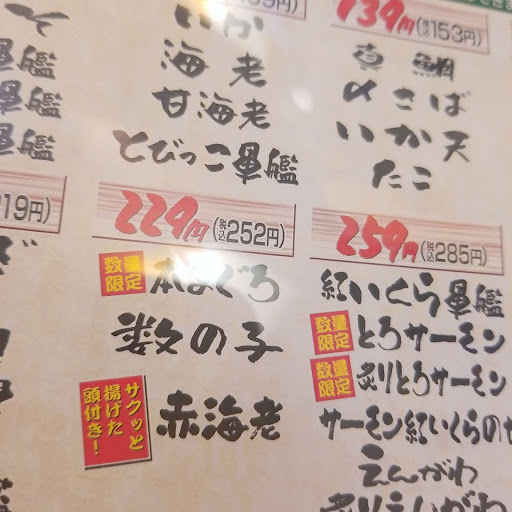 いか
海老
甘海老
とびっこ軍艦
139円(税込153円)
真鯛
〆さば
いか天
たこ
軍艦
軍艦
軍艦
219円)
229円(税込252円)
数量限定 本まぐろ
数の子
サクッと揚げた頭付き! 赤海老
259円(税込285円)
紅いくら軍艦
数量限定 とろサーモン
数量限定 炙りとろサーモン
サーモン紅いくらのせ
えんがわ
炙りえんがわ